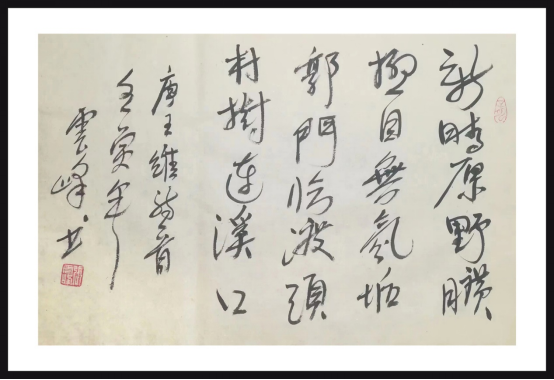 新晴原野曠
極目無氛垢
郭門臨渡頭
村樹連溪口
唐王維詩一首
年
雲峰书